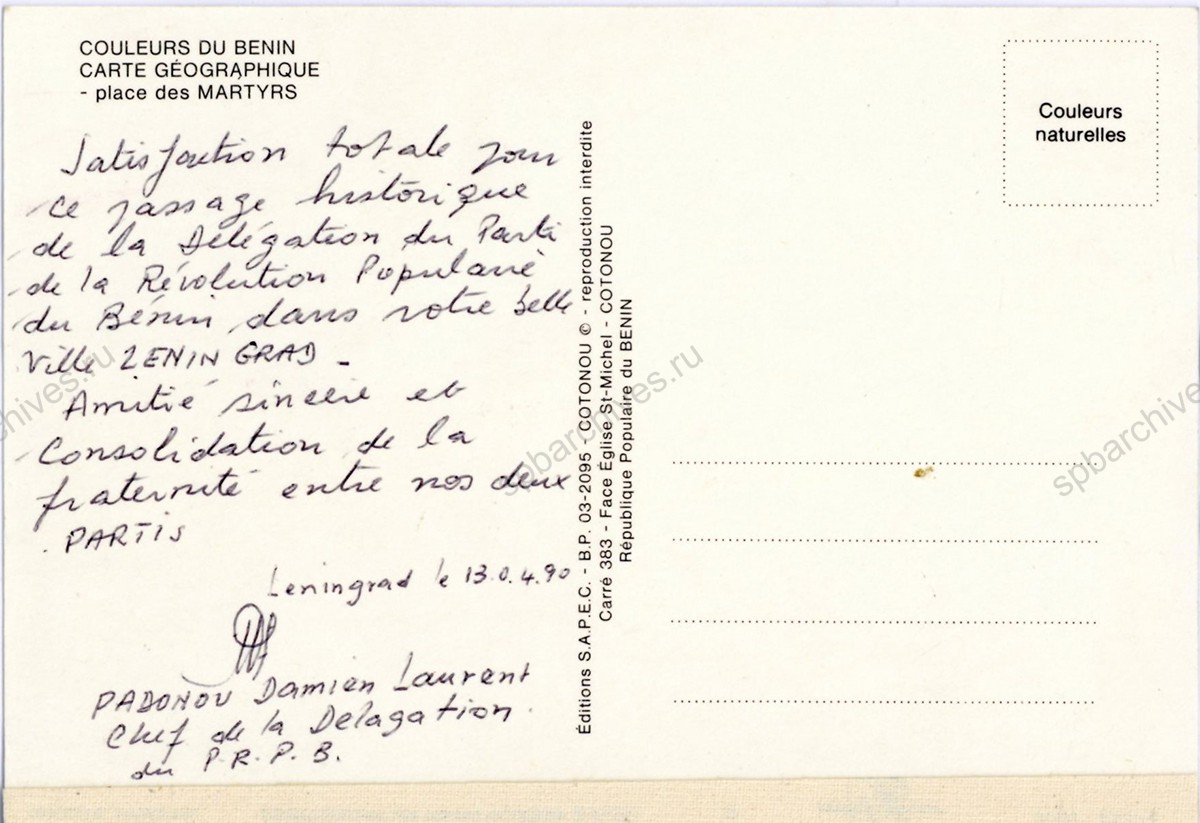 COULEURS DU BENIN
CARTE GÉOGRAPHIQUE
- place des MARTYRS
Couleurs
naturelles
Satisfaction totale pour
ce passage historique
de la Délégation du Parti
de la Révolution Populaire
du Bénin dans votre belle
ville LENINGRAD -
Amitié sincère et
Consolidation de la
fraternité entre nos deux
PARTIS
Leningrad le 13.0.4.90
PADONOU Damien Laurent
Chef de la Delagation
du P.R.P.B.
Éditions S.A.P.E.C. - B.P. 03-2095 - COTONOU © - reproduction interdite
Carré 383 - Face Église St-Michel - COTONOU
République Populaire du BENIN
spbarchives.ru